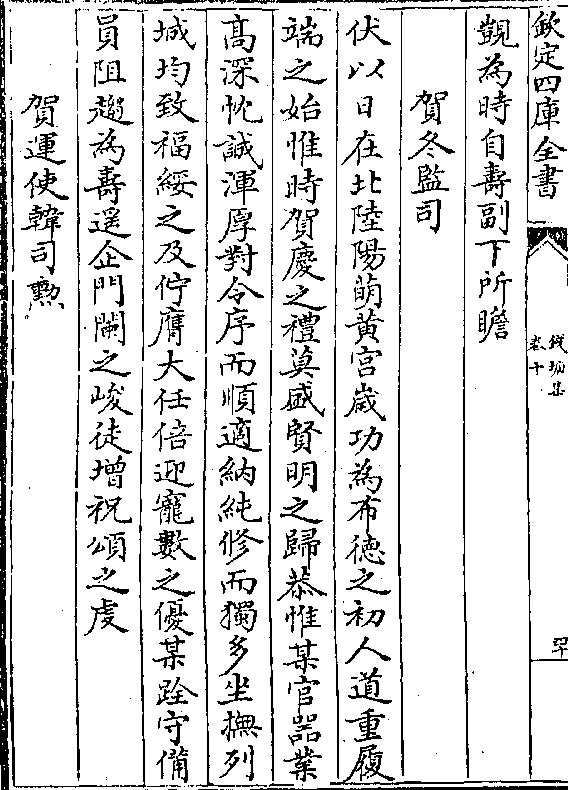 欽定四庫全書
錢塘集
卷十
四十
覲為時自壽副下所瞻
賀冬監司
伏以日在北陸陽萌黄宮嵗功為布徳之初人道重履
端之始惟時賀慶之禮莫盛賢明之歸恭惟某官器業
髙深忱誠渾厚對令序而順適納純修而獨多坐撫列
城均致福綏之及佇膺大任倍迎寵數之優某跧守備
員阻趨為壽遥企門闌之峻徒增祝頌之䖍
賀運使韓司勲